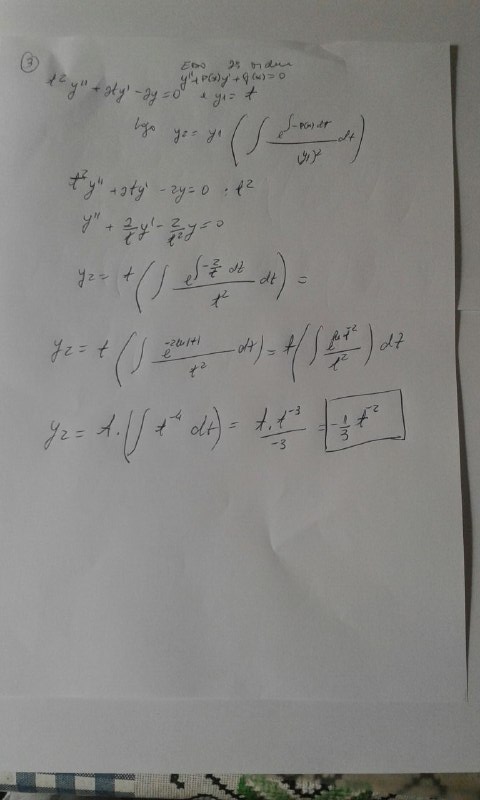 ③ EDO 2ª ordem
y'' + P(x)y' + q(x) = 0
t² y'' + 2ty' - 2y = 0 e y₁ = t
logo y₂ = y₁ ( ∫ e^∫-P(x) dt / (y₁)² dt )
t² y'' + 2ty' - 2y = 0 : t²
y'' + 2/t y' - 2/t² y = 0
y₂ = t ( ∫ e^∫-2/t dt / t² dt ) =
y₂ = t ( ∫ e^-2ln|t| / t² dt ) = t ( ∫ e^ln t^-2 / t² ) dt
y₂ = t . ( ∫ t^-4 dt ) = t . t^-3 / -3 = -1/3 t^-2